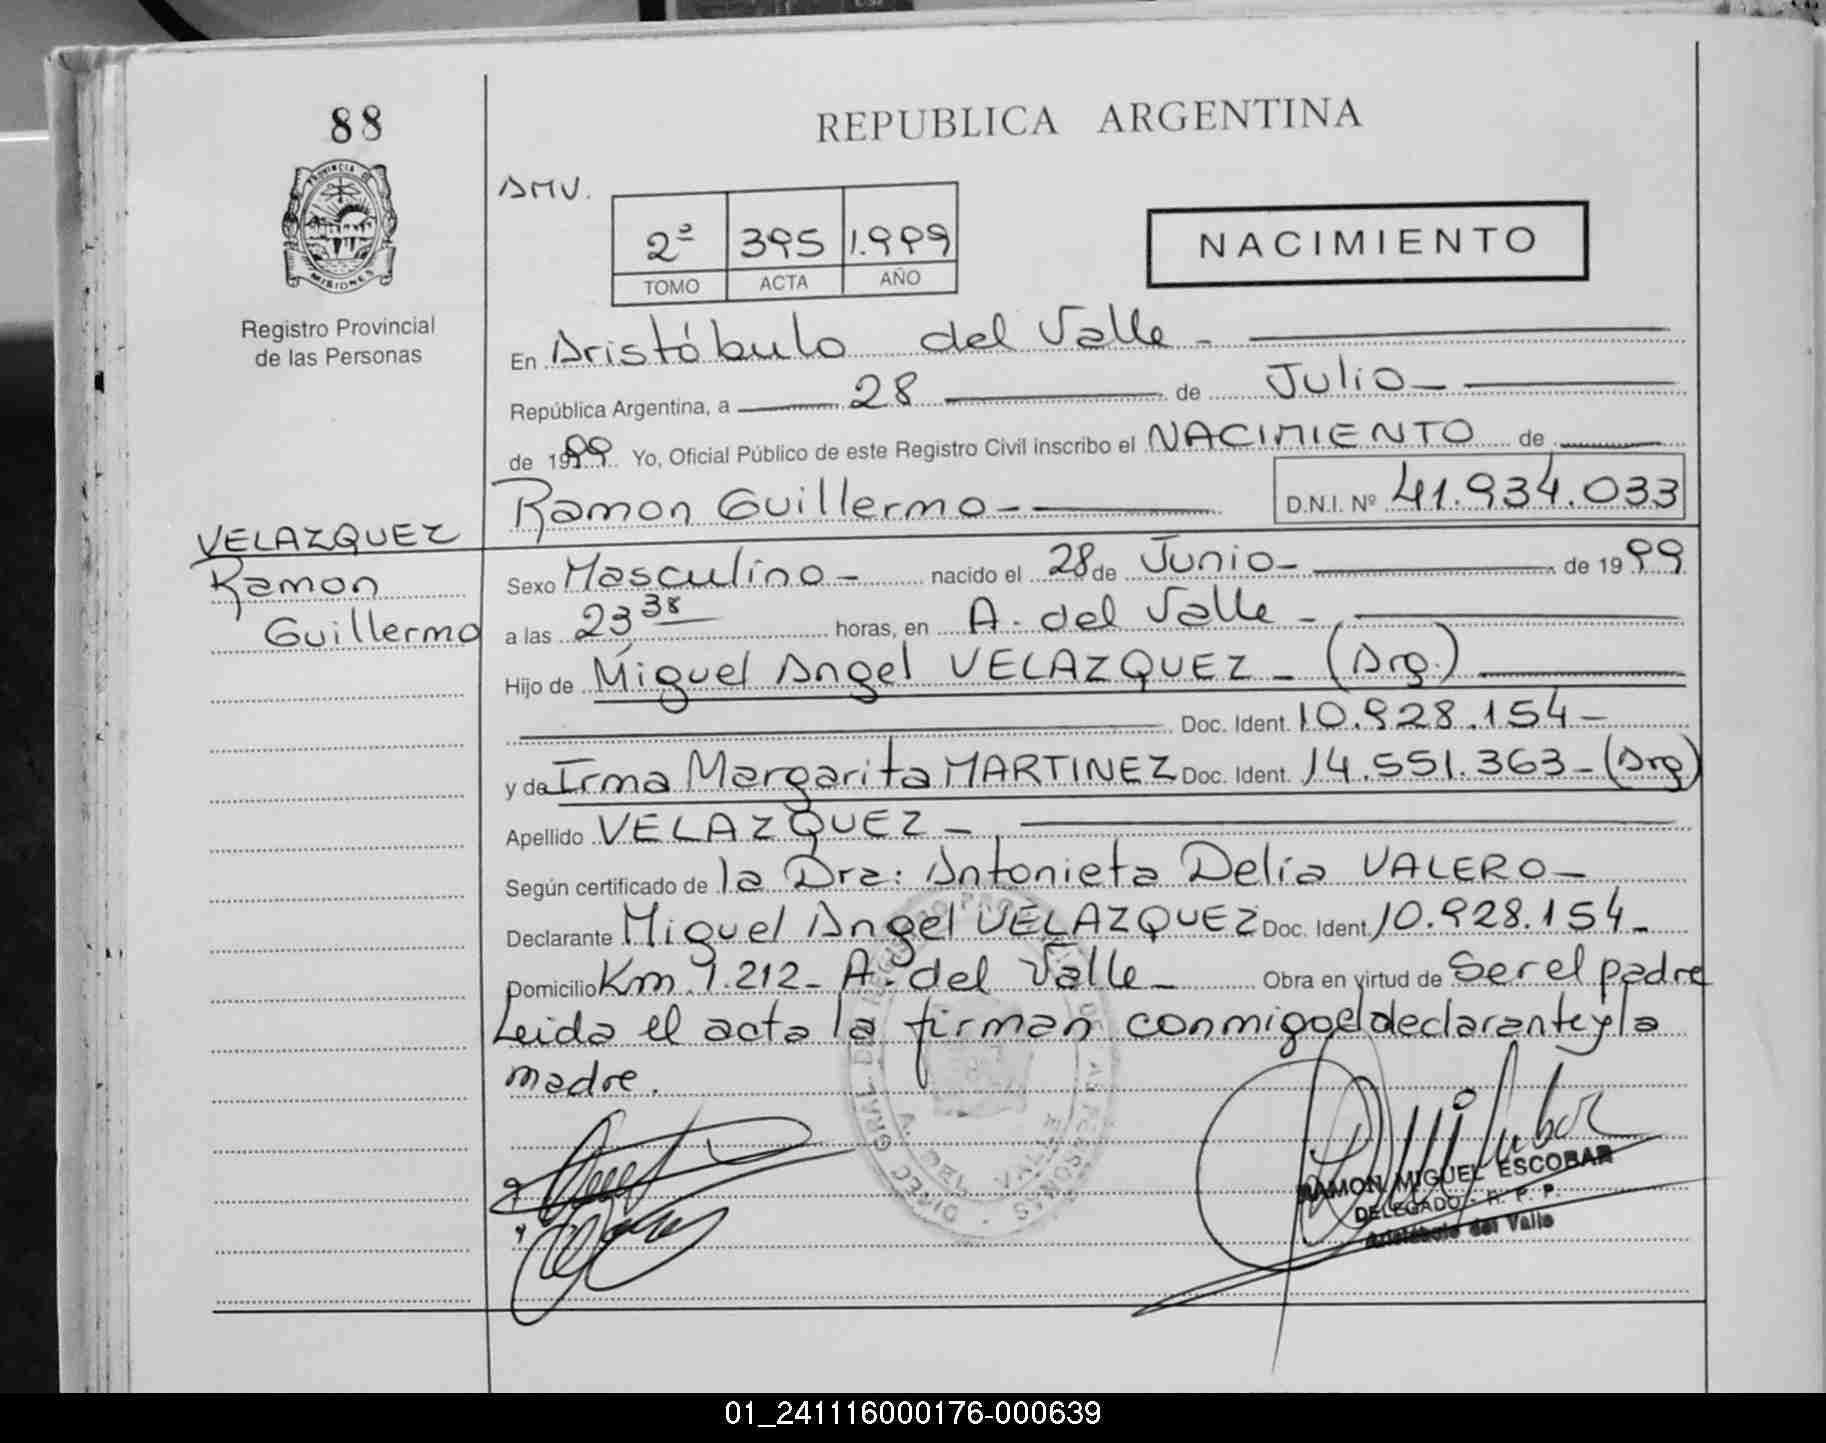 88
REPUBLICA ARGENTINA
PROVINCIA DE
MISIONES
Registro Provincial
de las Personas
AMV.
2º 395 1.999
TOMO ACTA AÑO
NACIMIENTO
En Aristóbulo del Valle -
República Argentina, a 28 de Julio -
de 1999 Yo, Oficial Público de este Registro Civil inscribo el NACIMIENTO de
Ramon Guillermo - D.N.I. Nº 41.934.033
VELAZQUEZ
Ramon
Guillermo
Sexo Masculino - nacido el 28 de Junio - de 1999
a las 23 38 horas, en A. del Valle -
Hijo de Miguel Angel VELAZQUEZ - (Arg.)
Doc. Ident. 10.928.154 -
y de Irma Margarita MARTINEZ Doc. Ident. 14.551.363 - (Arg)
Apellido VELAZQUEZ -
Según certificado de la Dra: Antonieta Delia VALERO -
Declarante Miguel Angel VELAZQUEZ Doc. Ident. 10.928.154 -
Domicilio Km. 1.212 - A. del Valle - Obra en virtud de Ser el padre
Leida el acta la firman conmigo el declarante y la
madre.
RAMON MIGUEL ESCOBAR
DELEGADO - R. P. P.
Aristóbulo del Valle
A. DEL VALLE
01_241116000176-000639